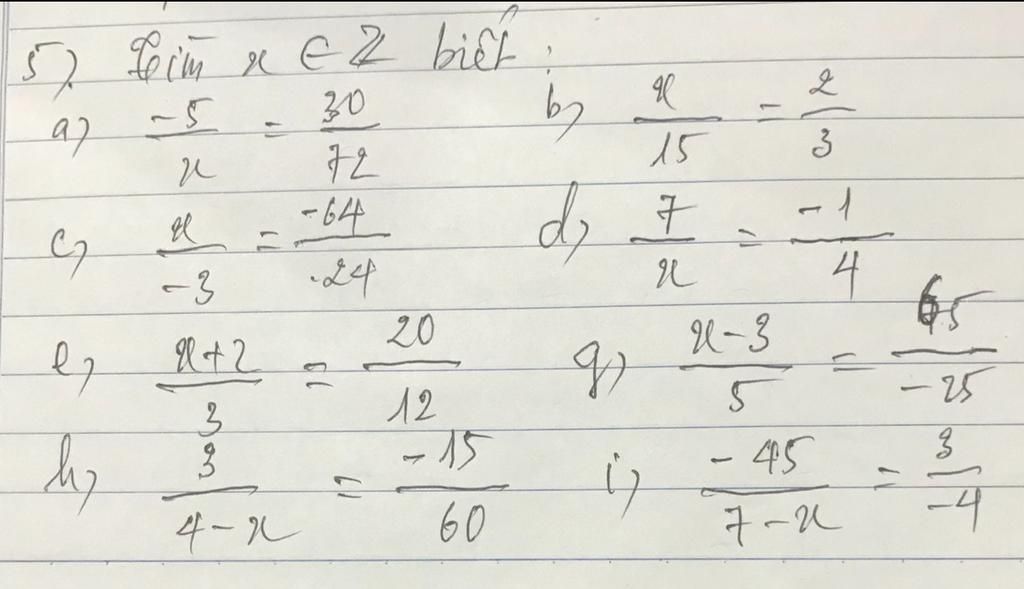 5). Tìm x ∈ Z biết:
a) -5/x = 30/72 b) x/15 = 2/3
c) x/-3 = -64/-24 d) 7/x = -1/4
e) x+2/3 = 20/12 g) x-3/5 = 65/-25
h) 3/4-x = -15/60 i) -45/7-x = 3/-4